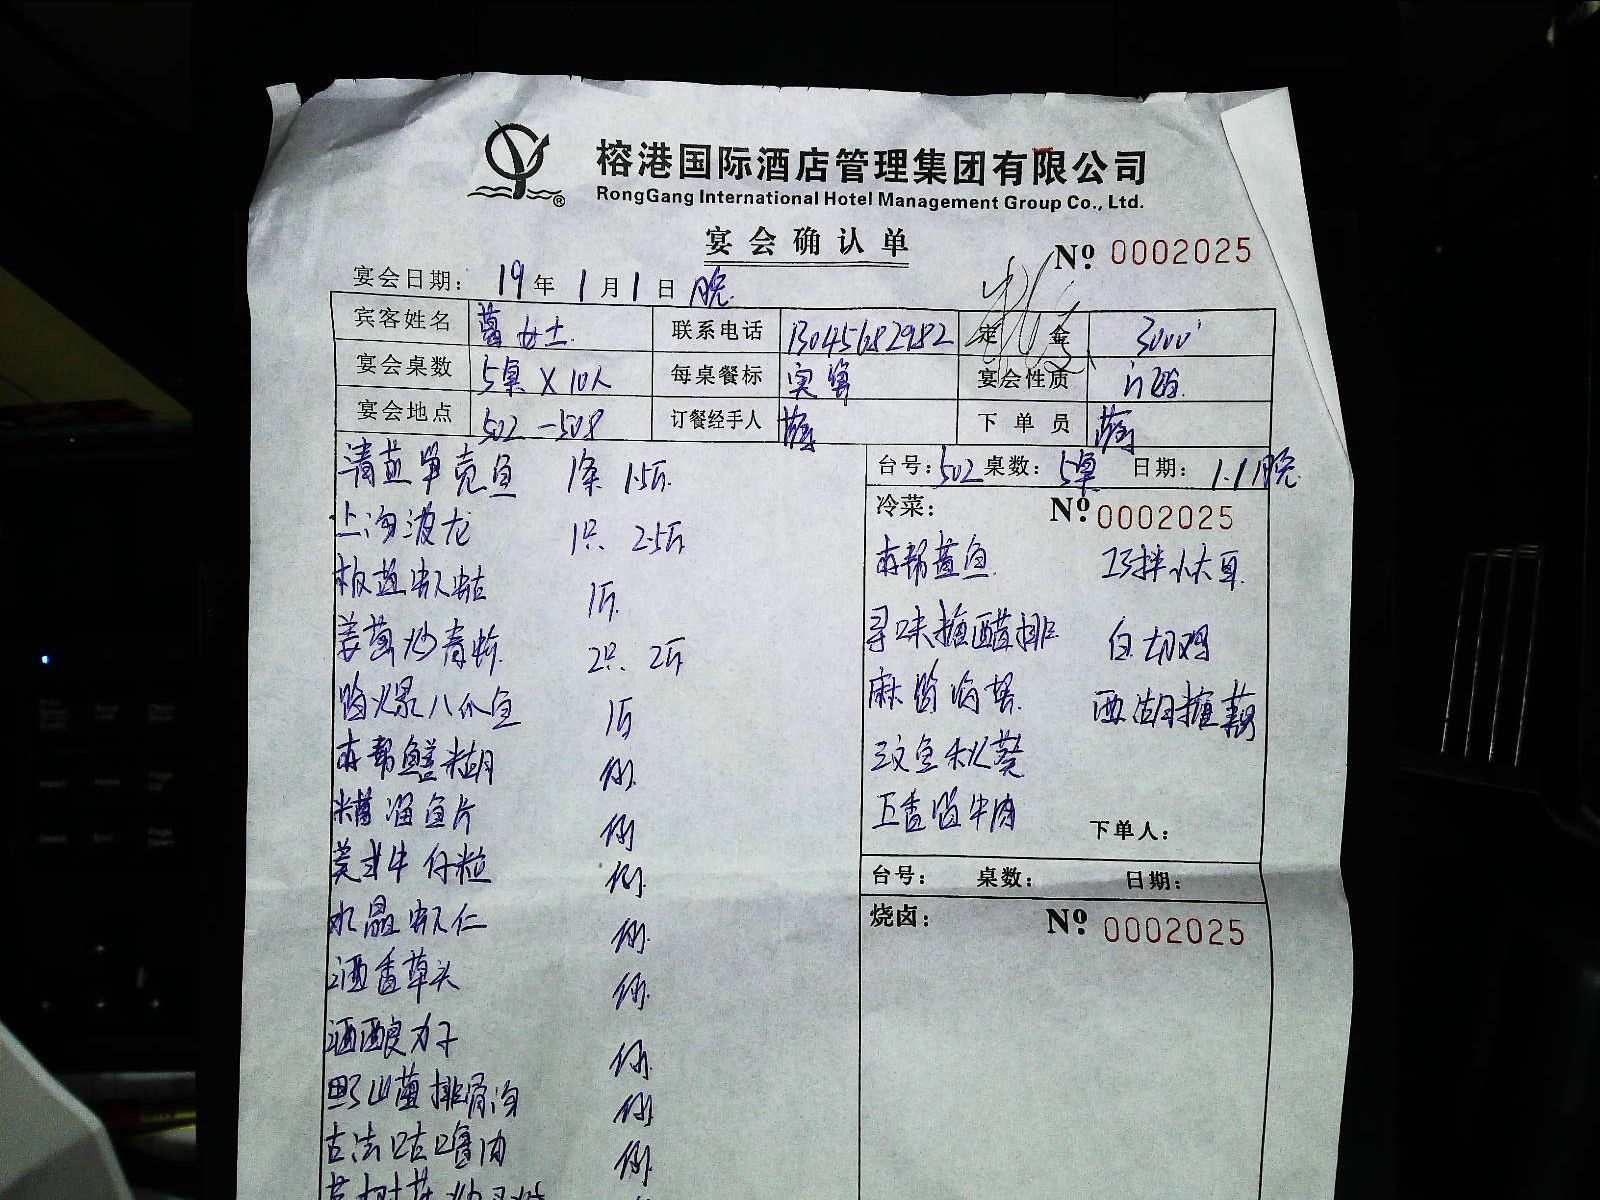 榕港国际酒店管理集团有限公司
RongGang International Hotel Management Group Co., Ltd.
宴会确认单
Nº 0002025
宴会日期: 19 年 1 月 1 日 晚
宾客姓名 葛女士 联系电话 13045682982 定金 3000
宴会桌数 5桌 X 10人 每桌餐标 实算 宴会性质
宴会地点 502-508 订餐经手人 下单员
台号: 502 桌数: 5桌 日期: 1.1晚
冷菜: Nº 0002025
清蒸笋壳鱼 1条 1.5斤
上汤波龙 1只 2.5斤
椒盐虾蛄 1斤
姜葱炒青蟹 2只 2斤
酱爆八爪鱼 1斤
本帮鳝糊 例
糟溜鱼片 例
美式牛仔粒 例
水晶虾仁 例
酒香草头 例
酒酿圆子 例
野山菌排骨汤 例
古法咕噜肉 例
本帮熏鱼 巧拌小木耳
寻味糖醋排 白切鸡
麻酱海蜇 西湖糖藕
三文鱼秋葵
五香酱牛肉
下单人:
台号: 桌数: 日期:
烧卤: Nº 0002025